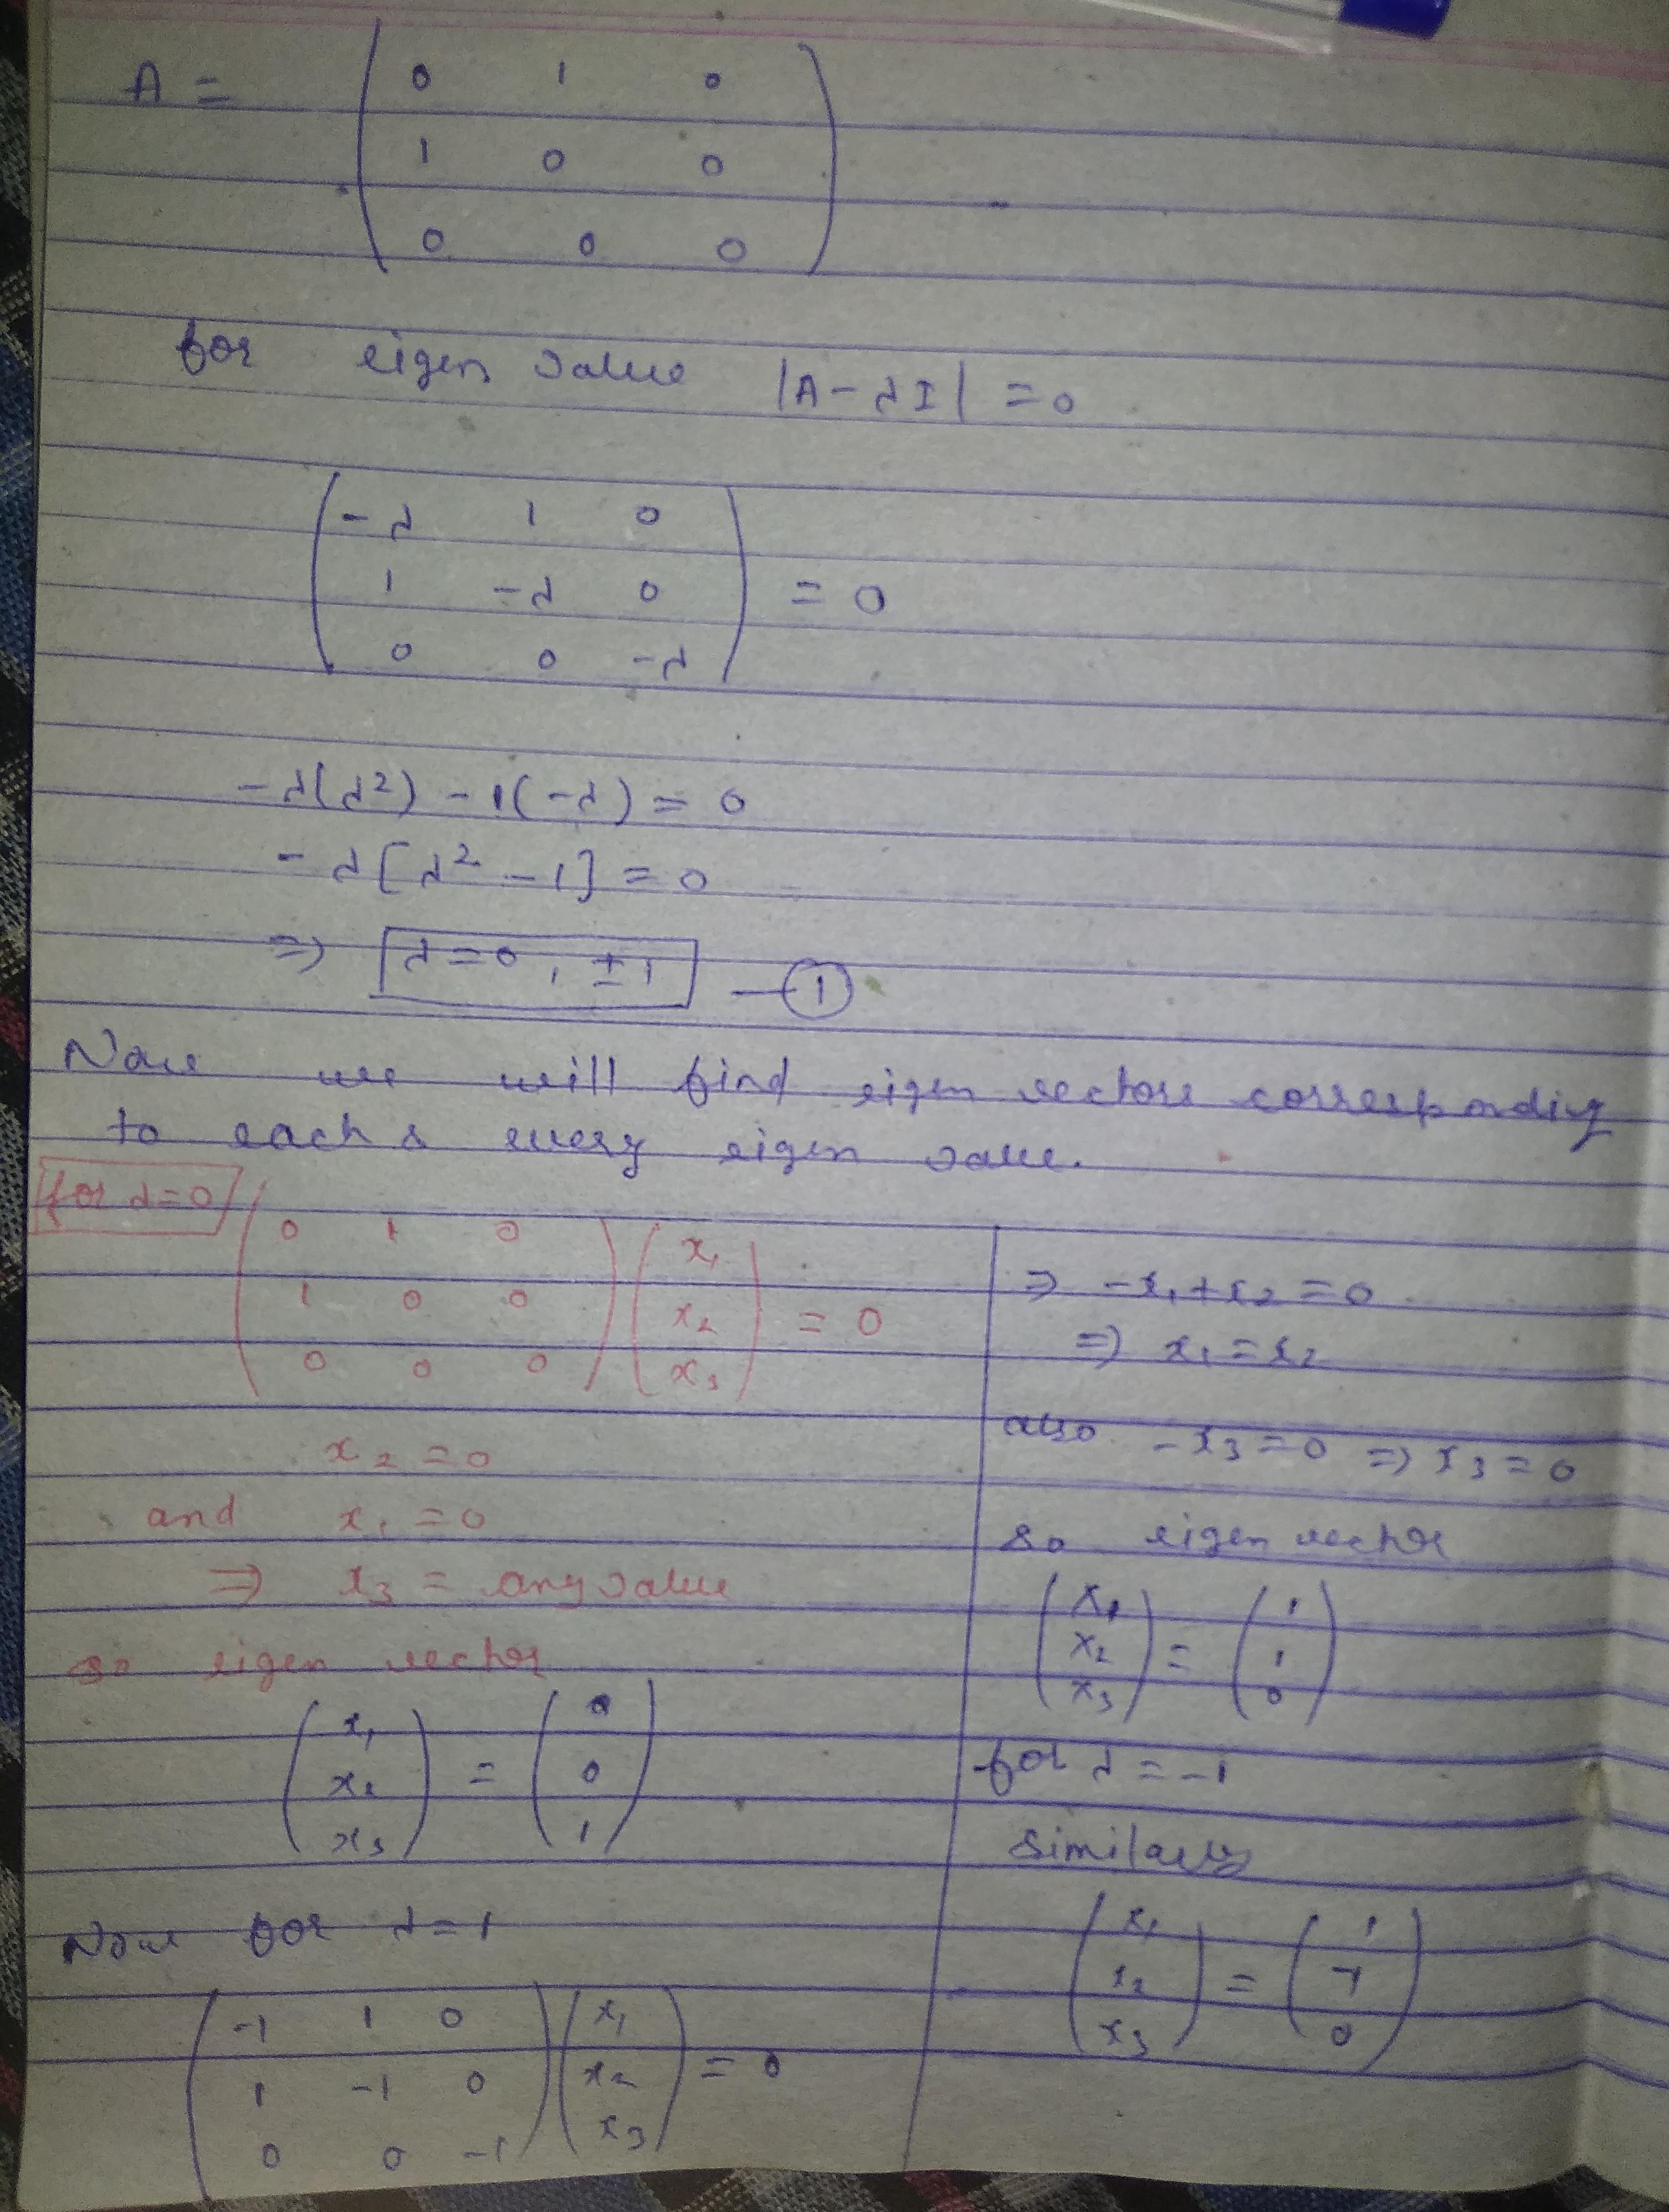 A = ( 0 1 0
1 0 0
0 0 0 )
for eigen value |A-λI| = 0
( -λ 1 0
1 -λ 0
0 0 -λ ) = 0
-λ(λ²) - 1(-λ) = 0
-λ[λ² - 1] = 0
⇒ λ=0, ±1 — ①
Now we will find eigen vectors corresponding
to each & every eigen value.
for λ=0
( 0 1 0
1 0 0
0 0 0 ) ( x₁
x₂
x₃ ) = 0
x₂ = 0
and x₁ = 0
⇒ x₃ = any value
so eigen vector
( x₁
x₂
x₃ ) = ( 0
0
1 )
Now for λ=1
( -1 1 0
1 -1 0
0 0 -1 ) ( x₁
x₂
x₃ ) = 0
⇒ -x₁+x₂ = 0
⇒ x₁ = x₂
also -x₃ = 0 ⇒ x₃ = 0
so eigen vector
( x₁
x₂
x₃ ) = ( 1
1
0 )
for λ = -1
similarly
( x₁
x₂
x₃ ) = ( 1
-1
0 )